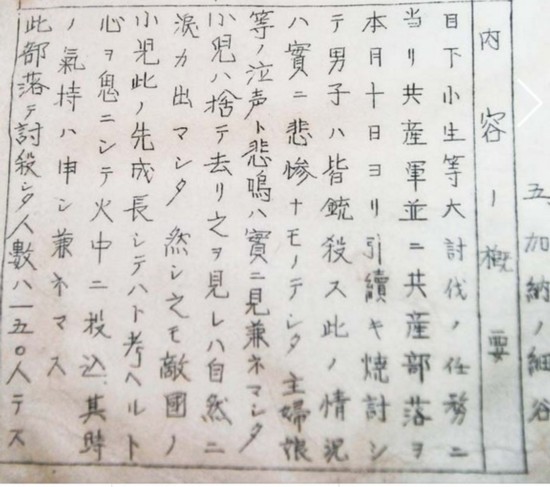 五、加納ノ細谷
内容ノ概要
目下小生等大討伐ノ任務ニ
当リ共産軍並ニ共産部落ヲ
本月十日ヨリ引續キ焼討シ
テ男子ハ皆銃殺ス此ノ情況
ハ實ニ悲惨ナモノテシタ主婦娘
等ノ泣声ト悲鳴ハ實ニ見兼ネマシタ
小児ハ捨テ去リ之ヲ見レハ自然ニ
涙カ出マシタ然シ之モ敵國ノ
小児此ノ先成長シテハト考ヘルト
心ヲ鬼ニシテ火中ニ投込、其時
ノ氣持ハ申シ兼ネマス
此部落テ討殺シタ人數ハ一五〇人テス